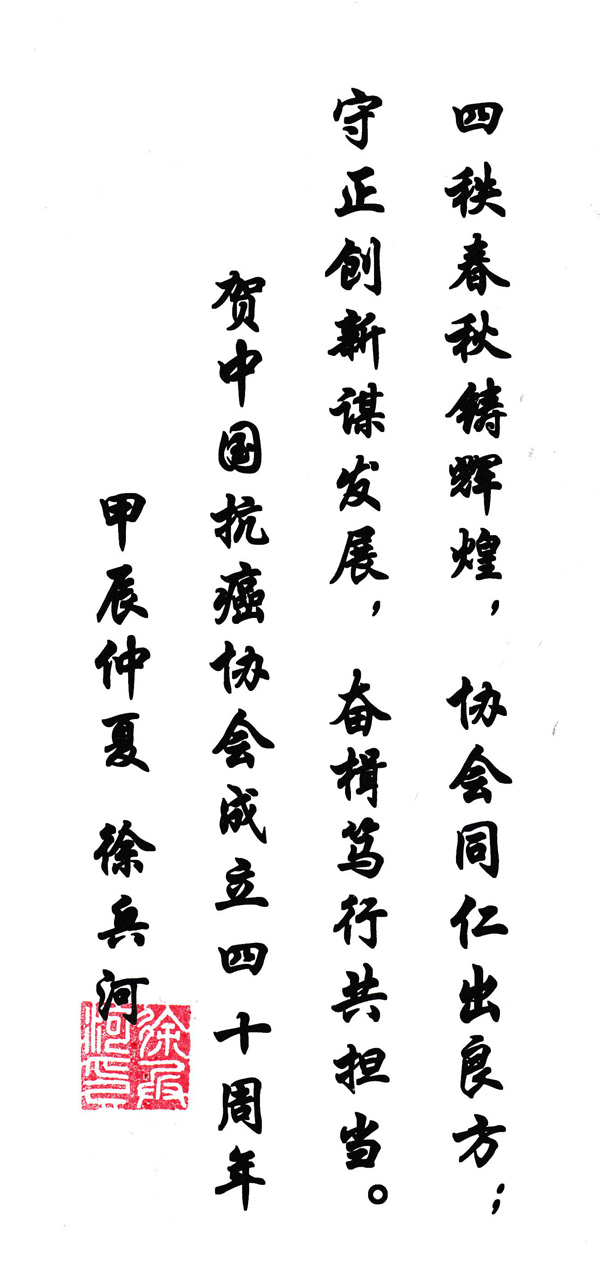 四秩春秋铸辉煌，协会同仁出良方；
守正创新谋发展，奋楫笃行共担当。
贺中国抗癌协会成立四十周年
甲辰仲夏 徐兵河
徐兵河印